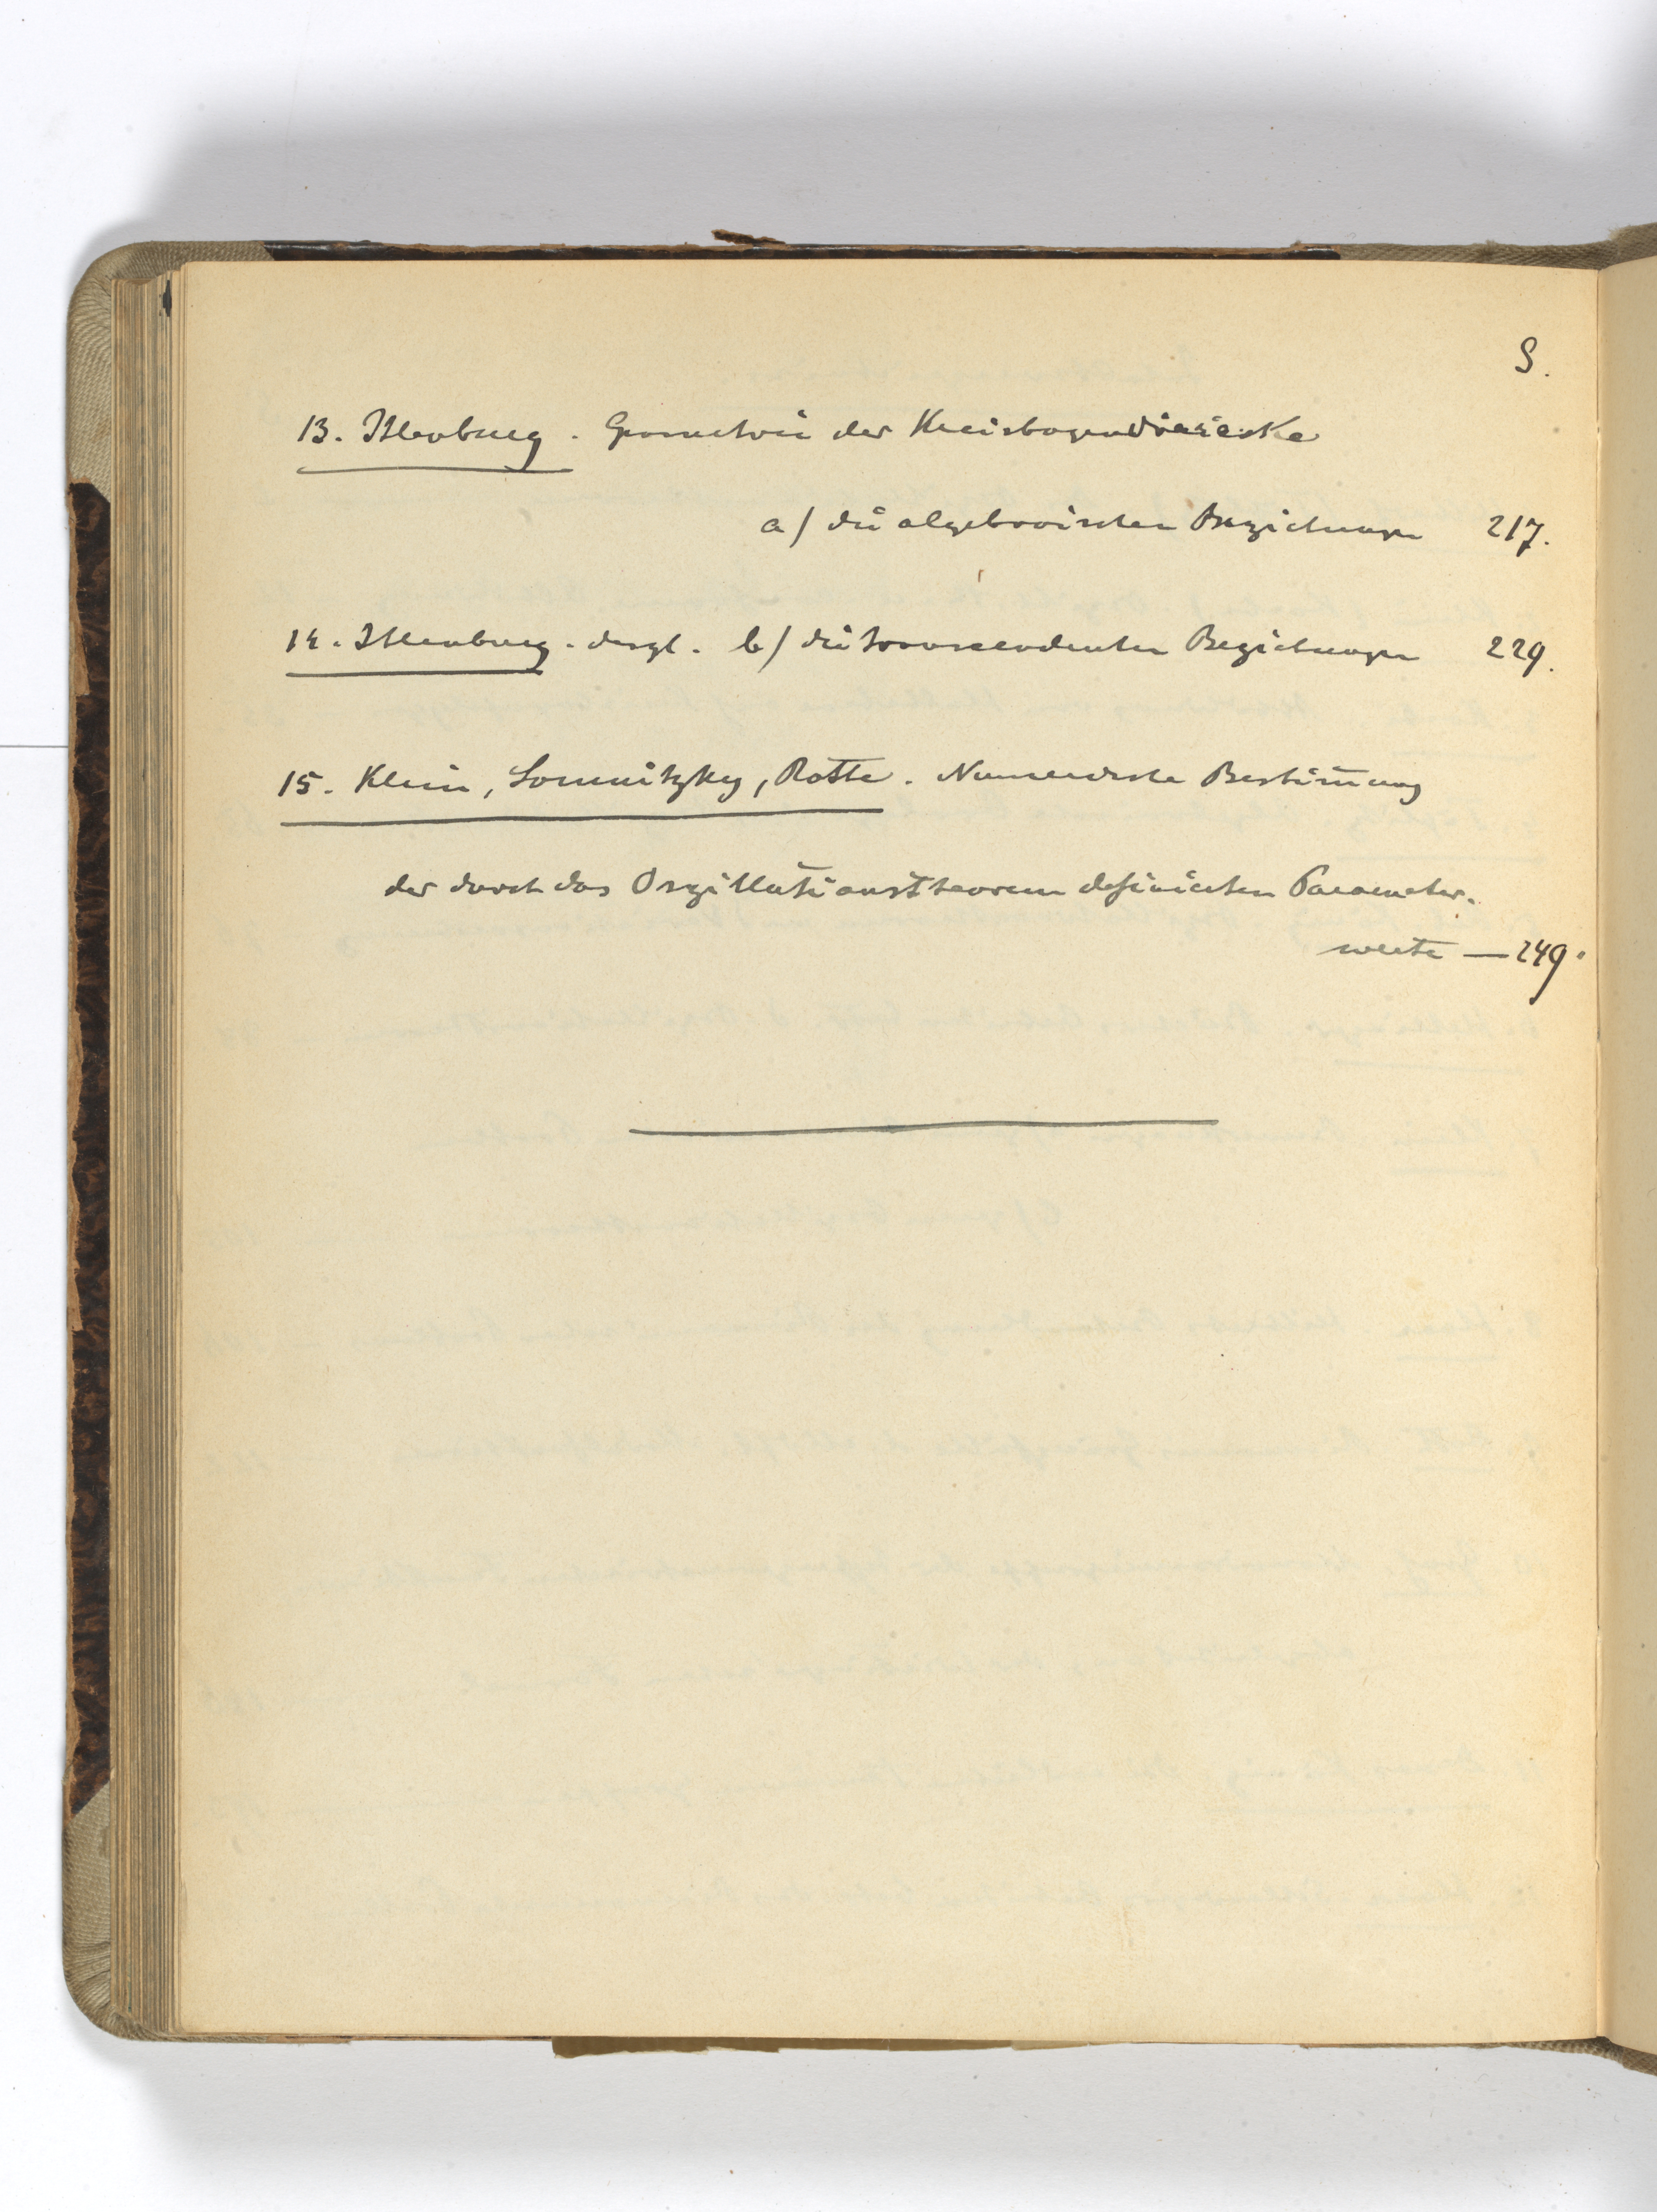 S.
13. Ihlenburg. Geometrie der Kreisbogendreiecke
a) die algebraischen Beziehungen 217.
14. Ihlenburg. desgl. b) die transcendenten Beziehungen 229.
15. Klein, Lomnitzky, Rothe. Numerische Bestim̅ung
der durch das Oszillationstheorem definierten Parameter-
werte — 249.